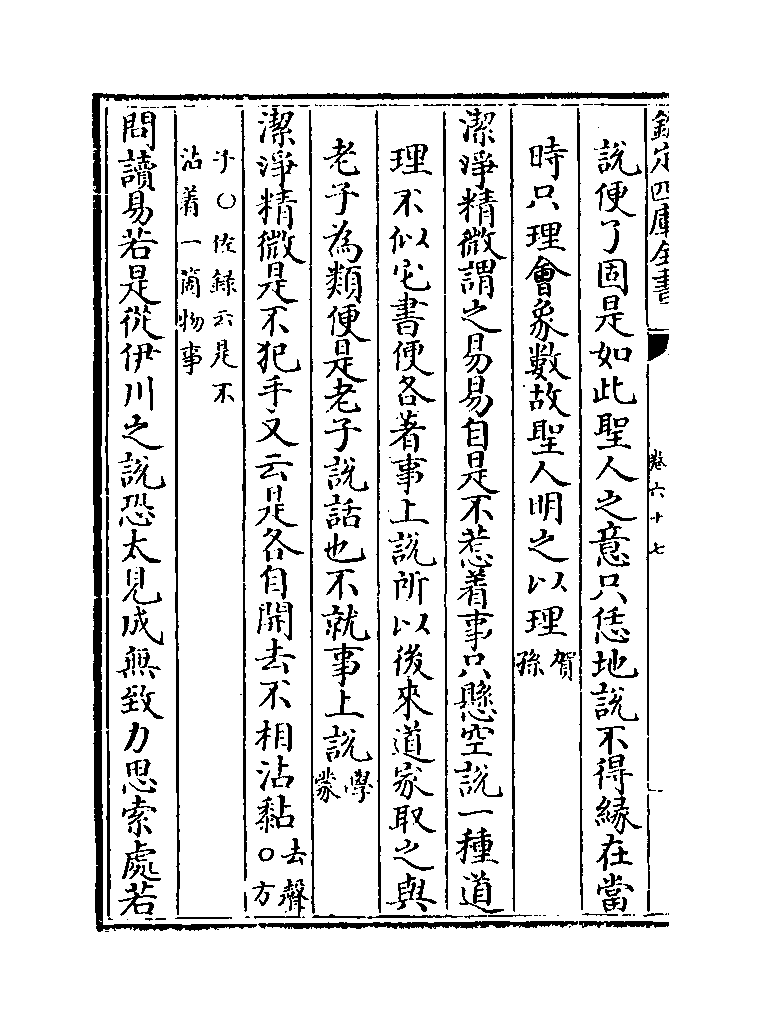 欽定四庫全書
卷六十七
說便了固是如此聖人之意只恁地說不得縁在當
時只理會象數故聖人明之以理賀孫
潔淨精微謂之易易自是不惹着事只懸空說一種道
理不似它書便各著事上說所以後來道家取之與
老子為類便是老子說話也不就事上說學蒙
潔淨精微是不犯手又云是各自開去不相沾黏去聲○方
子○佐録云是不
沾着一箇物事
問讀易若是從伊川之說恐太見成無致力思索處若